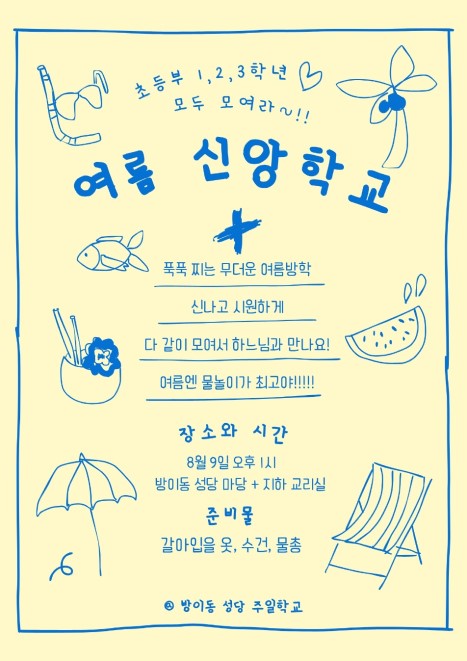 초등부 1,2,3학년
모두 모여라~!!
여름 신앙학교
푹푹 찌는 무더운 여름방학
신나고 시원하게
다 같이 모여서 하느님과 만나요!
여름엔 물놀이가 최고야!!!!!
장소와 시간
8월 9일 오후 1시
방이동 성당 마당 + 지하 교리실
준비물
갈아입을 옷, 수건, 물총
@ 방이동 성당 주일학교